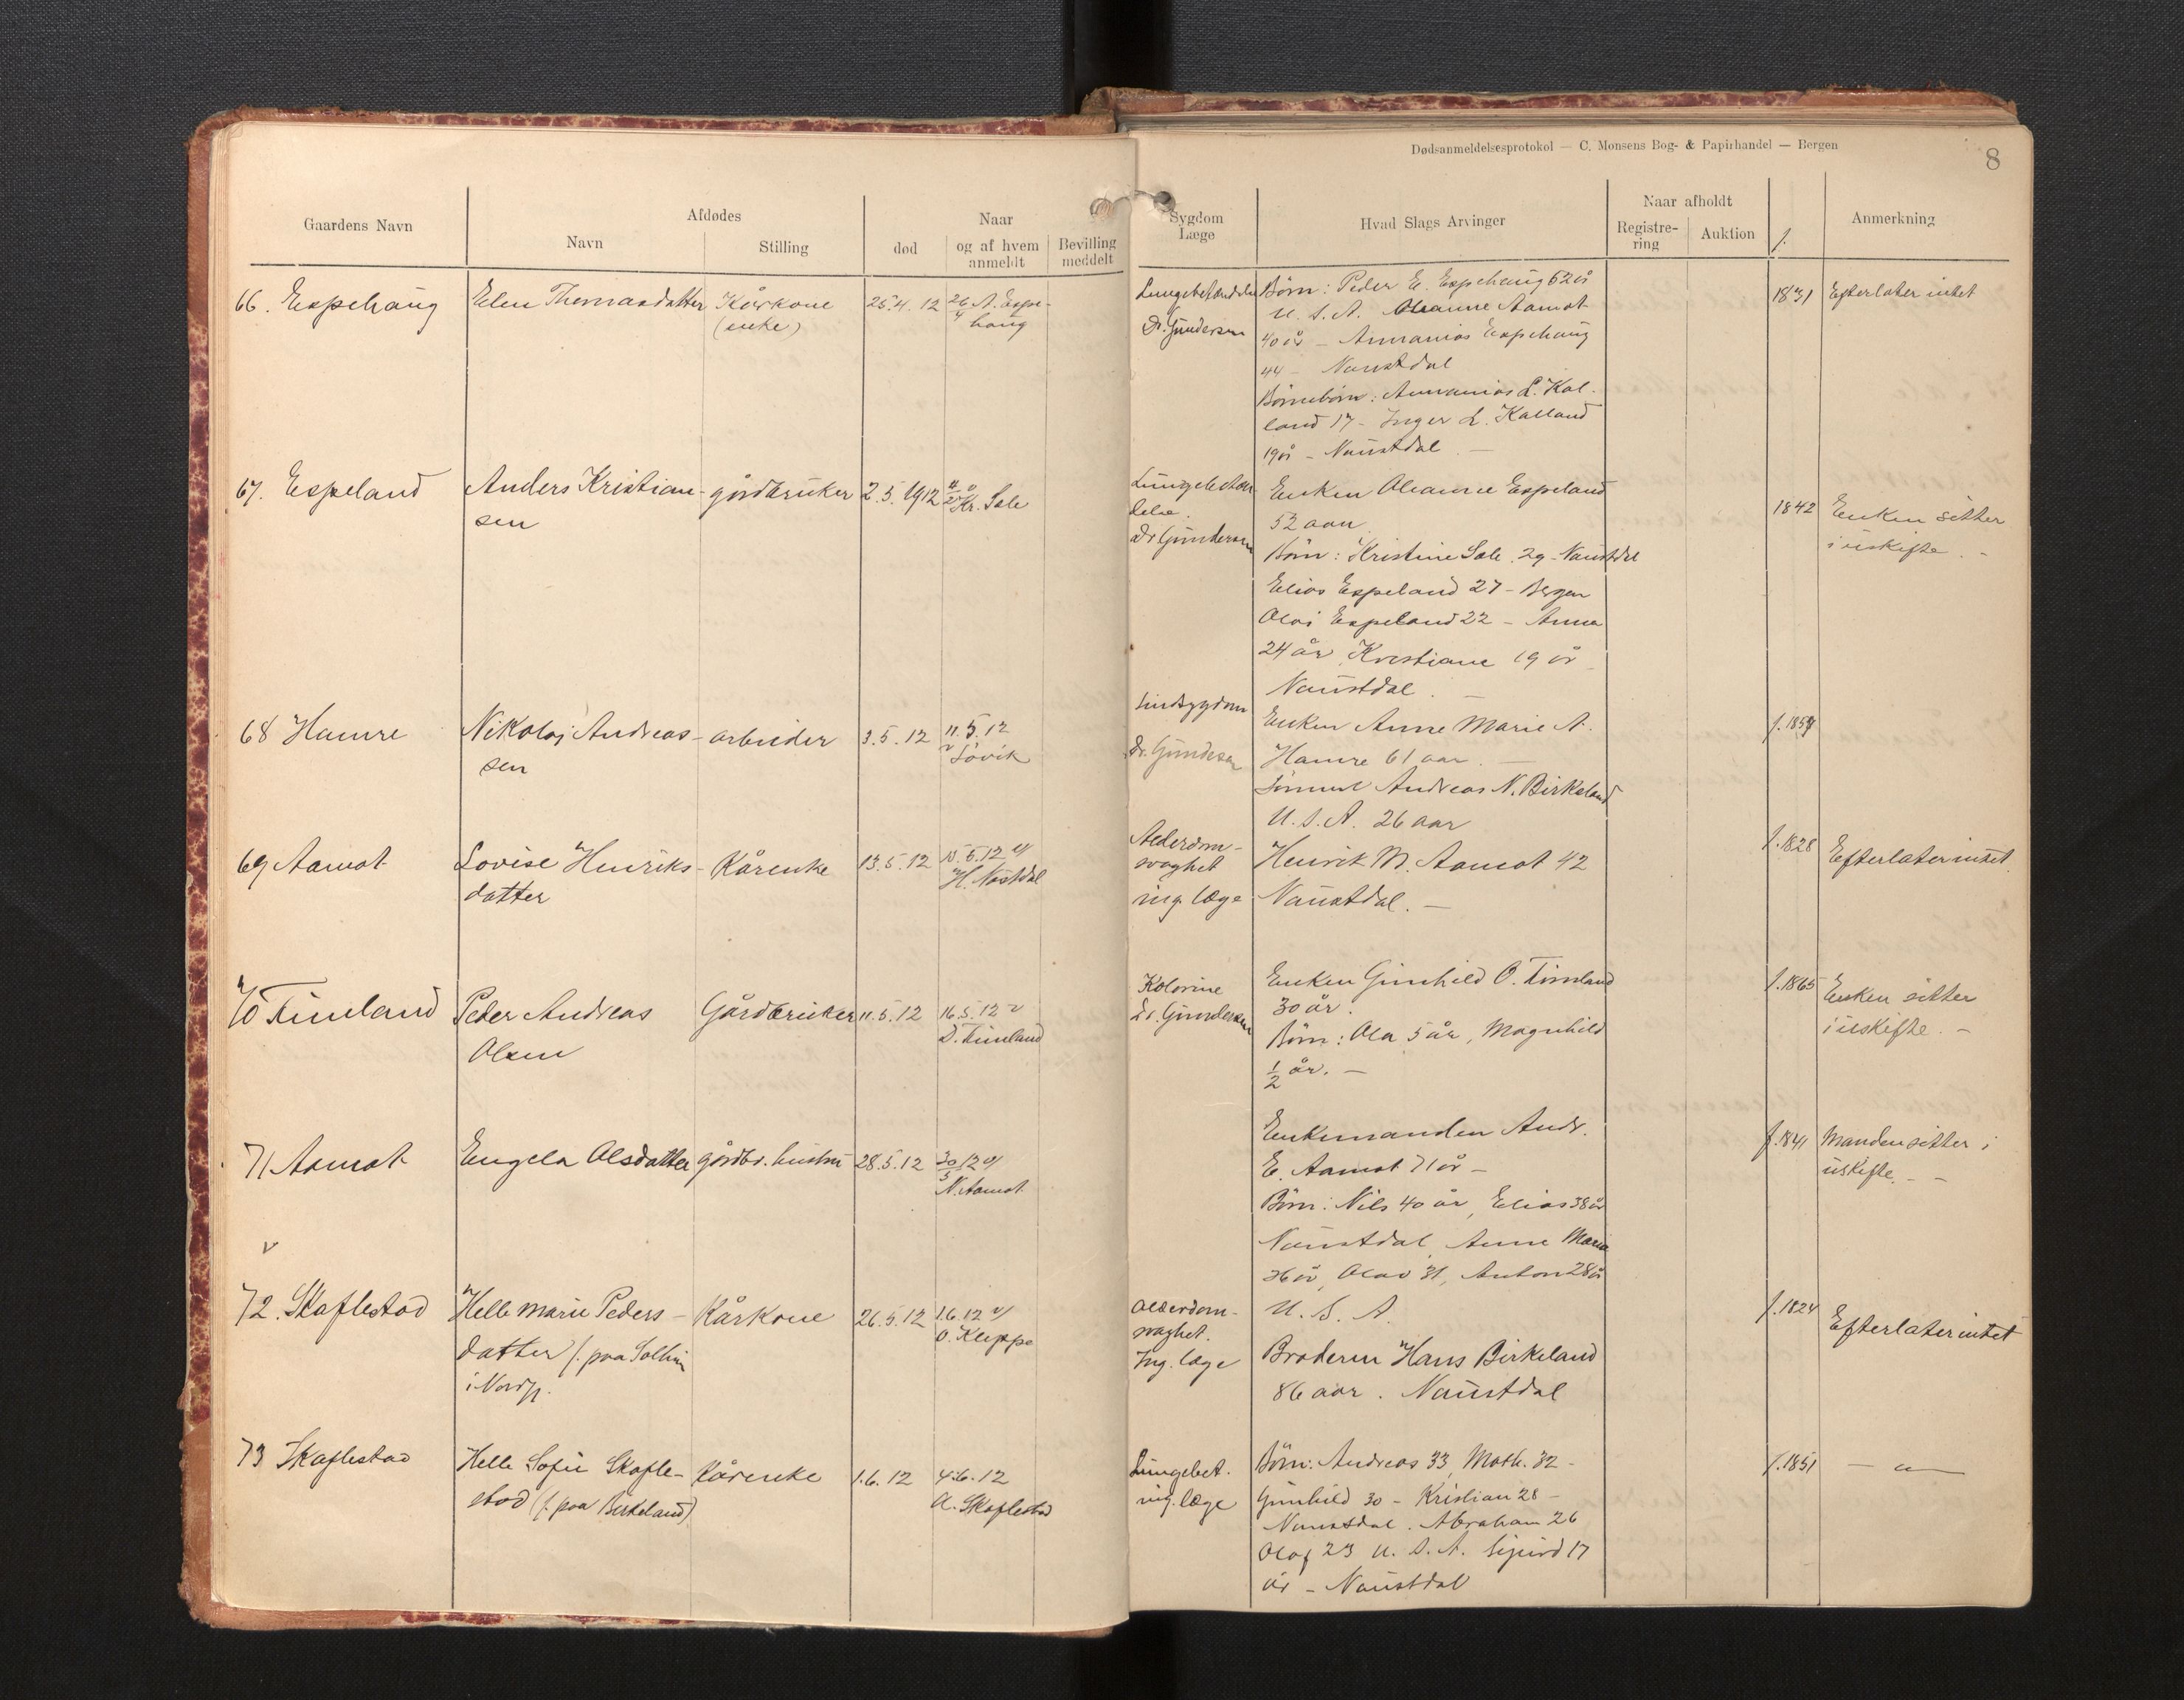 Dødsanmeldelsesprotokol — C. Monsens Bog- & Papirhandel — Bergen
8
Gaardens Navn
Afdødes
Navn
Stilling
Naar
død
og af hvem anmeldt
Bevilling meddelt
Sygdom
Læge
Hvad Slags Arvinger
Naar afholdt
Registre-
ring
Auktion
f.
Anmerkning
66. Espehaug
Elen Thomasdatter
Kårkone
(enke)
25.4.12
26/4 A. Espe-
haug
Lungebetændelse
Dr. Gundersen
Børn: Peder E. Espehaug 52 år
U. S. A. Oleanne Aamot
40 år – Annanias Espehaug
44 – Naustdal
Børnebörn: Annanias L. Kal-
land 17 – Inger L. Kalland
19 år – Naustdal
1831
Efterlater intet
67. Espeland
Anders Kristian-
sen
gårdbruker
2.5.1912
Kr. Sole
Lungebetæn
delse.
Dr Gundersen
Enken Oleanne Espeland
52 aar
Börn: Kristine Sole 29 – Naustdal
Elias Espeland 27 – Bergen
Olai Espeland 22 – Anna
24 år, Kristiane 19 år
Naustdal. –
1842
Enken sitter
i uskifte. –
68 Hamre
Nikolai Andreas-
sen
arbeider
3.5.12
11.5.12
v Lövik
Sindsygdom
Dr. Gundersen
Enken Anne Marie N.
Hamre 61 aar. –
Sönnen Andreas N. Birkeland
U. S. A. 26 aar
69 Aamot
Lovise Henriks-
datter
Kårenke
13.5.12
15.5.12 v/
H. Nastdal
Alderdom-
svaghet
ing. læge
Henrik M. Aamot 42
Naustdal. –
f. 1828
Efterlater intet.
70 Timland
Peder Andreas
Olsen
Gårdbruker
11.5.12
16.5.12 v
D. Timland
Dr. Gundersen
Enken Gunhild O. Timland
30 år.
Börn: Ola 5 år, Magnhild
1/2 år. –
f. 1865
Enken sitter
i uskifte. –
71 Aamot
Engela Olsdatter
gårdbr. hustru
28.5.12
30/5 12 v/
N. Aamot
Enkemanden Andr.
E. Aamot 71 år –
Börn: Nils 40 år, Elias 38 år
Naustdal, Anne Marie
36 år, Olav 31, Anton 28 år
U. S. A.
f. 1841
Manden sitter i
uskifte. – –
v
72. Skaflestad
Helle Marie Peders-
datter f. paa Solhei
i Nordf.
Kårkone
26.5.12
1.6.12 v/
O. Kleppe
Alderdom-
svaghet.
Ing. læge
Broderen Hans Birkeland
86 aar. Naustdal
f. 1824
Efterlater intet
73 Skaflestad
Helle Sofie Skafle-
stad (f. paa Birkeland)
Kårenke
1.6.12
4.6.12
A. Skaflestad
Lungebet.
ing. læge
Börn: Andreas 33, Math. 32 –
Gunhild 30 – Kristian 28 –
Naustdal. Abraham 26
Olaf 23 U. S. A. Sigurd 17
år – Naustdal
f. 1851
— „ —